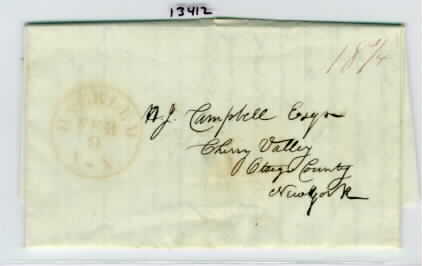 13412
18 3/4
FEB
9
A. J. Campbell Esqr
Cherry Valley
Otsego County
New York